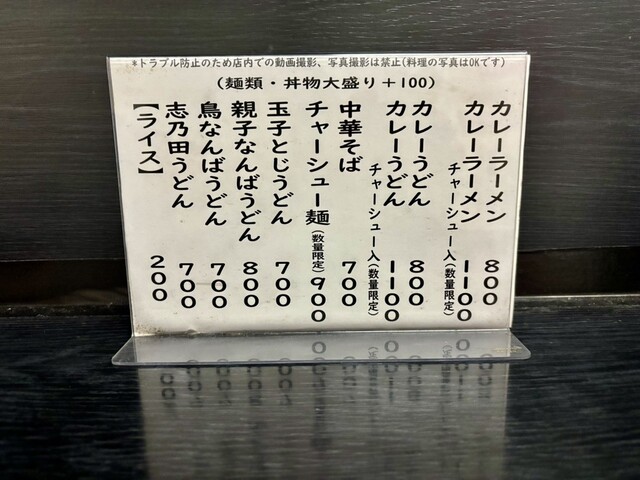 *トラブル防止のため店内での動画撮影、写真撮影は禁止(料理の写真はOKです)
(麺類・丼物大盛り+100)
カレーラーメン 800
カレーラーメン チャーシュー入(数量限定) 1100
カレーうどん 800
カレーうどん チャーシュー入(数量限定) 1100
中華そば 700
チャーシュー麺(数量限定) 900
玉子とじうどん 700
親子なんばうどん 800
鳥なんばうどん 700
志乃田うどん 700
【ライス】 200